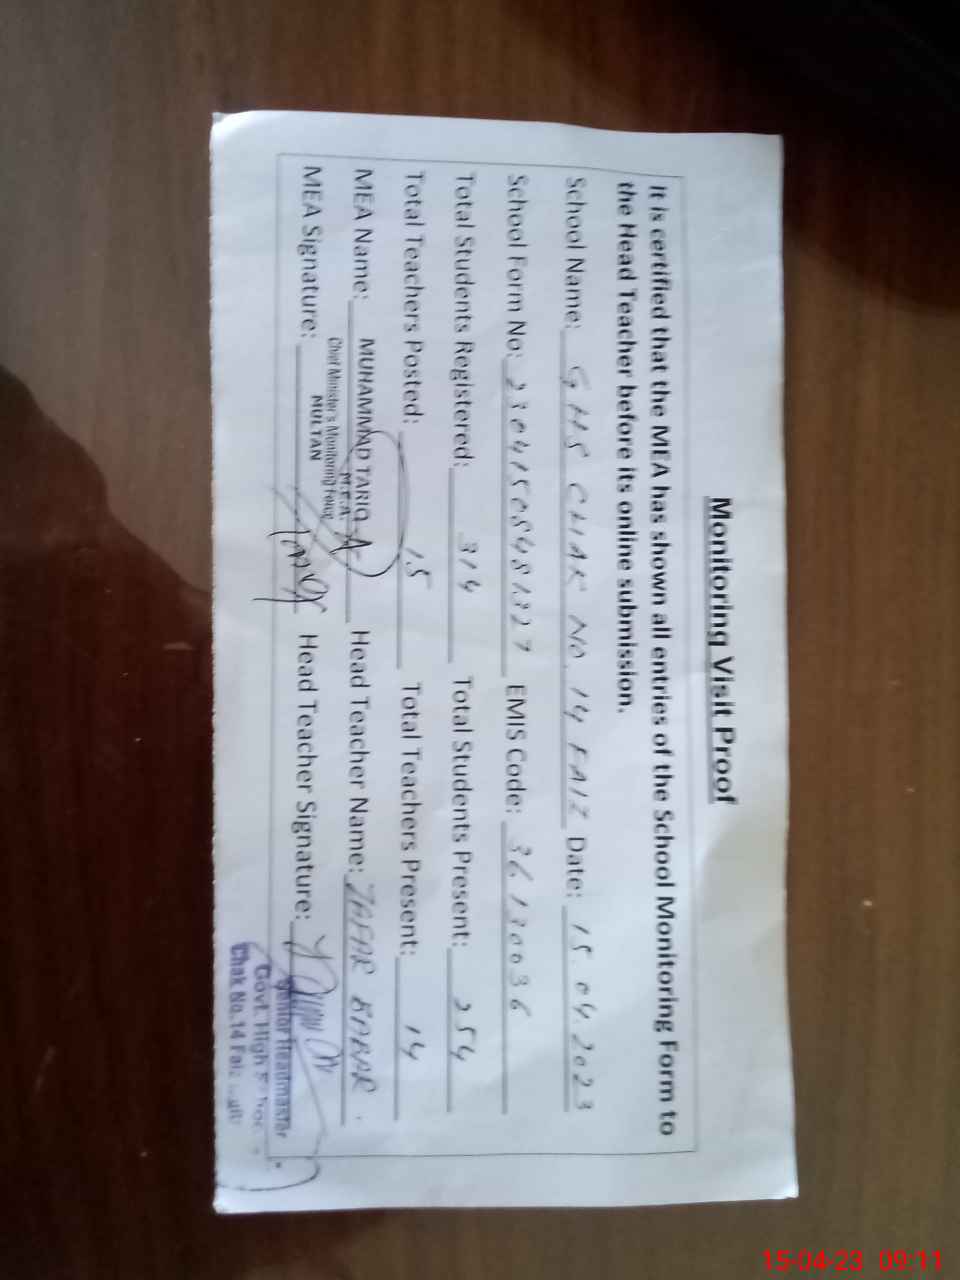 Monitoring Visit Proof
It is certified that the MEA has shown all entries of the School Monitoring Form to
the Head Teacher before its online submission.
School Name: GHS CHAK NO. 14 FAIZ Date: 15.04.2023
School Form No: 230415085481327 EMIS Code: 36130036
Total Students Registered: 314 Total Students Present: 254
Total Teachers Posted: 15 Total Teachers Present: 14
MEA Name: MUHAMMAD TARIQ Head Teacher Name: ZAFAR BABAR.
M.E.A.
Chief Minister's Monitoring Force
MULTAN
MEA Signature: Head Teacher Signature:
Senior Headmaster
Govt. High
Chak No.14
15-04-23 09:11